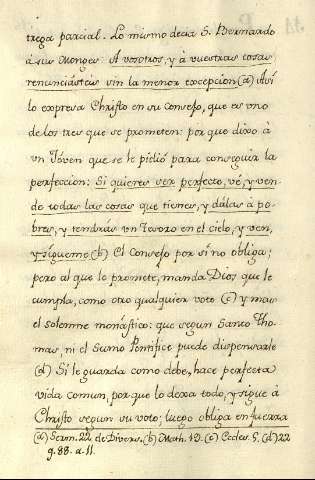 trega parcial. Lo mismo decia S. Bernardo
à sus Monges: A vosotros, y à vuestras cosas
renunciásteis sin la menor excepcion (a) Así
lo expresa Christo en su Consejo, que es uno
de los tres que se prometen: porque dixo à
un Jóven que se le pidió para conseguir la
perfeccion: Si quieres ser perfecto, vé, y ven-
de todas las cosas que tienes, y dálas à po-
bres, y tendrás un Tesoro en el cielo, y ven,
y sígueme (b) El Consejo por sí no obliga;
pero al que lo promete, manda Dios que le
cumpla, como otro qualquier voto (c) y mas
el solemne monástico: que segun Santo Tho-
mas, ni el Sumo Pontifice puede dispensarle
(d) Si le guarda como debe, hace perfecta
vida comun, porque lo dexa todo, y sigue à
Christo segun su voto; luego obliga en fuerza
(a) Serm. 22 de Divers. (b) Math. 19. (c) Ecles. 5. (d) 22
q. 88. a. 11.